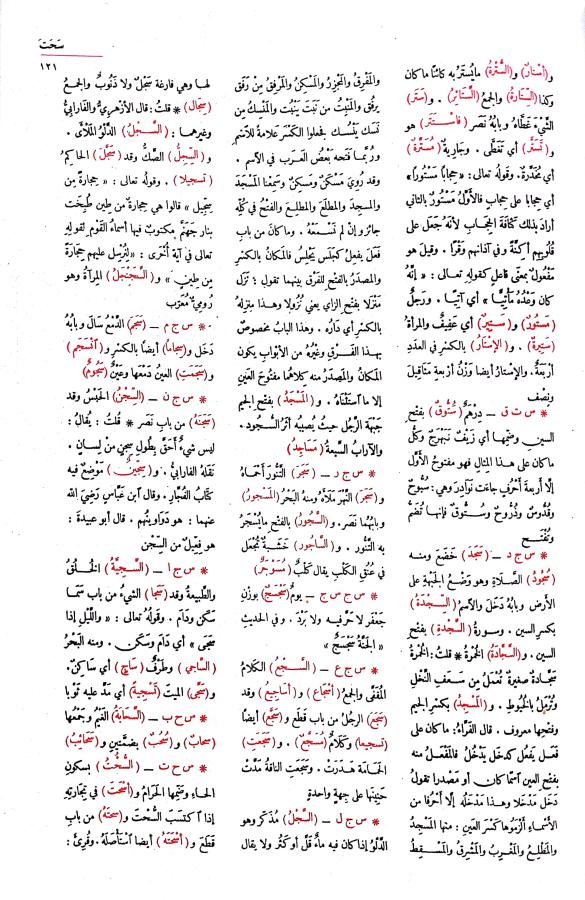 سَحَتَ
١٢١
و(أَسْتَارٌ) و(السُّتْرَةُ) ما يُسْتَرُ به كائنًا ما كان
وكذا (السِّتَارةُ) والجمعُ (السَّتَائرُ) . و(سَتَرَ)
الشَّيْءَ غَطَّاهُ وبابهُ نَصَر (فاسْتَتَر) هو
و(تَسَتَّرَ) أي تَغَطَّى . وجاريةٌ (مُسَتَّرَةٌ)
أي مُخَدَّرةٌ. وقولُه تعالى: «حِجَابًا مَسْتُورًا»
أي حجابا على حِجابٍ فالأوَّلُ مَسْتُورٌ بالثاني
أرادَ بذلك كَثَافةَ الحِجَابِ لأنهُ جَعل على
قُلُوبِهِم أكِنَّةً وفي آذانهم وَقْرًا. وقيل هو
مَفْعُولٌ بمعنى فاعلٍ كقولِه تعالى : «إنَّهُ
كان وَعْدُهُ مَأْتِيًّا» أي آتِيًا . ورَجُلٌ
(مَسْتُورٌ) و(سَتِيرٌ) أي عَفِيفٌ والمرأةُ
(سَتِيرةٌ) . و(الإسْتَارُ) بالكسرِ في العدَدِ
أربعةٌ. والإسْتارُ أيضا وَزْنُ أربعةِ مَثَاقِيلَ
ونِصْفٍ
* س ت ق – دِرْهَمٌ (سَتُّوقٌ) بفتحِ
السينِ وضمّها أي زَيْفٌ نَبَهْرَجٌ وكُلُّ
ما كان على هذا المِثالِ فهو مفتوحُ الأوَّلِ
إلّا أربعةَ أحْرُفٍ جاءت نَوَادِرَ وهي: سُبُّوحٌ
وقُدُّوسٌ وذُرُّوحٌ وسُتُّوقٌ فإنها تُضَمُّ
وتُفْتَحُ
* س ج د – (سَجَدَ) خَضَعَ ومنه
(سُجُودُ) الصَّلاةِ وهو وَضْعُ الجَبْهةِ على
الأرضِ وبابُهُ دَخَلَ والاسمُ (السِّجْدَةُ)
بكسرِ السين . وسورةُ (السَّجْدةِ) بفتحِ
السين . و(السَّجَّادَةُ) الخُمْرةُ * قلتُ: الخُمْرةُ
سَجَّادةٌ صغيرةٌ تُعْمَلُ من سَعَفِ النَّخْلِ
وتُزَمَّلُ بالخُيوطِ . و(المَسْجِدُ) بكسْرِ الجيمِ
وفتحِها معروف. قال الفَرَّاءُ: ما كان على
فَعَل يَفْعُل كدخَل يَدْخُلُ فالمَفْعَلُ منه
بفتحِ العينِ آسماً كان أو مَصْدرا تقولُ
دَخَل مَدْخَلا وهذا مَدْخَلُه إلّا أحْرُفا من
الأسْمَاءِ أَلْزَمُوها كَسْرَ العين: منها المَسْجِدُ
والمَطْلِعُ والمَغْرِبُ والمَشْرِقُ والمَسْقِطُ
والمَفْرِقُ والمَجْزِرُ والمَسْكِنُ والمَرْفِقُ مِنْ رَفَق
يَرْفُق والمَنْبِتُ من نَبَتَ يَنْبُتُ والمَنْسِكُ من
نَسَك يَنْسُك. فجعلوا الكَسْر علامةً للاسمِ
ورُبما فَتحه بعْضُ العَرب في الاسم .
وقد رُوِيَ مَسْكَنٌ ومَسْكِنٌ وسَمِعْنا المَسْجَدَ
والمسجِدَ والمطلَعَ والمطلِعَ والفتحُ في كُلِّه
جائزٌ وإنْ لم نَسْمَعْهُ . وما كان من باب
فَعَلَ يفعِلُ كجَلَس يَجْلِسُ فالمَكانُ بالكسْرِ
والمصدَرُ بالفتحِ للفَرْقِ بينهما تقول : نَزَل
مَنْزَلا بفتح الزاي يعني نُزُولا وهذا مَنْزِلُه
بالكسْرِ أي دَارُه . وهذا البابُ مَخصوصٌ
بهذا الفَرْقِ وغَيْرُه من الأبْوابِ يكون
المكانُ والمَصْدَرُ منه كلاهُما مفتوحَ العينِ
إلا ما استَثْنَاهُ . و(المَسْجَدُ) بفتحِ الجيمِ
جَبْهَةُ الرَّجُلِ حيثُ يُصِيبُه أثَرُ السُّجُود .
والآرابُ السبعةُ (مَسَاجِدُ)
* س ج ر – (سَجَرَ) التَّنُّورَ أَحْماهُ
و(سَجَرَ) النَّهرَ مَلَأَهُ ومنه البَحْرُ (المَسْجُورُ)
وبابُهما نَصر. و(السَّجُورُ) بالفتحِ ما يُسْجَرُ
به التَّنُّور . و(السَّاجُور) خَشَبةٌ تُجْعَل
في عُنُقِ الكَلْبِ يقال كَلْبٌ (مُسَوْجَرٌ)
* س ج س ج – يومٌ (سَجْسَجٌ) بوزْنِ
جَعْفَر لا حَرَّ فيه ولا بَرْدَ . وفي الحديثِ
«الجَنَّةُ سَجْسَجٌ»
* س ج ع – (السَّجْعُ) الكلامُ
المُقَفَّى والجمعُ (أَسْجَاعٌ) و(أَسَاجِيعُ) وقد
(سَجَعَ) الرَّجُلُ من باب قَطَعَ و(سَجَّعَ) أيضاً
(تسجيعا) وكلامٌ (مُسَجَّعٌ) . و(سَجَعَتِ)
الحَمامةُ هَدَرَتْ . وسَجَعَتِ الناقةُ مَدَّتْ
حَنِينَها على جهةٍ واحدةٍ
* س ج ل – (السَّجْلُ) مُذَكَّر وهو
الدَّلْوُ إذا كان فيه ماءٌ قلَّ أو كَثُر ولا يقال
لهما وهي فارغة سَجْلٌ ولا ذَنُوبٌ والجمعُ
(سِجَال) * قلتُ: قال الأزهريُّ والفارابيُّ
وغيرهما : (السَّجْلُ) الدَّلْوُ المَلْأَى .
و(السِّجِلُّ) الصَّكُّ وقد (سَجَّلَ) الحاكِمُ
(تسجيلا) . وقولُه تعالى : «حِجارةً مِن
سِجِّيلٍ» قالوا هي حِجارةٌ من طِينٍ طُبِخَت
بنارِ جَهنَّمَ مكتوبٌ فيها أسماءُ القَوْمِ لقولِه
تعالى في آيةٍ أُخْرَى: «لِنُرْسِلَ عليهم حِجارَةً
مِن طِينٍ» و(السَّجَنْجَلُ) المِرآةُ وهو
رُومِيٌّ مُعَرَّب
* س ج م – (سَجَمَ) الدَّمْعُ سَالَ وبابُهُ
دَخَل و(سِجَاماً) أيضاً بالكسْرِ و(انْسَجَمَ)
و(سَجَمَتِ) العَيْنُ دَمْعَها وعَيْنٌ (سَجُومٌ)
* س ج ن – (السِّجْنُ) الحَبْسُ وقد
(سَجَنَهُ) من باب نَصَر * قُلتُ : يُقالُ :
ليس شيءٌ أحَقَّ بِطُولِ سَجْنٍ من لِسانٍ .
نَقَله الفارابيُّ . و(سِجِّينٌ) مَوْضِعٌ فيه
كتابُ الفُجَّارِ. وقال ابن عَبَّاسٍ رَضِيَ الله
عنهما : هو دَوَاوِينُهم . قال أبو عبيدة :
هو فِعِّيلٌ من السِّجْن
* س ج ا – (السَّجِيَّةُ) الخُلُقُ
والطَّبيعةُ وقد (سَجَا) الشيءُ من باب سَمَا
سَكَن ودَامَ . وقولُهُ تعالى : «واللَّيلِ إذا
سَجَى» أي دَامَ وسَكَن . ومنه البَحْرُ
(السَّاجي) وطَرْفٌ (سَاجٍ) أي سَاكِنٌ.
و(سَجَّى) الميتَ (تَسْجِيةً) أي مَدَّ عليه ثَوْبا
* س ح ب – (السَّحَابَةُ) الغَيْمُ وجَمْعُها
(سحابٌ) و(سُحُبٌ) بضمَّتين و(سَحَائبُ)
* س ح ت – (السُّحْتُ) بسكونِ
الحاءِ وضمِّها الحَرَامُ و(أَسْحَتَ) في تِجارَتِه
إذا اكْتَسَبَ السُّحْتَ و(سَحَتَهُ) من باب
قَطَع و(أَسْحَتَهُ) أيضا اسْتَأْصَلَهُ. وقُرِئَ: